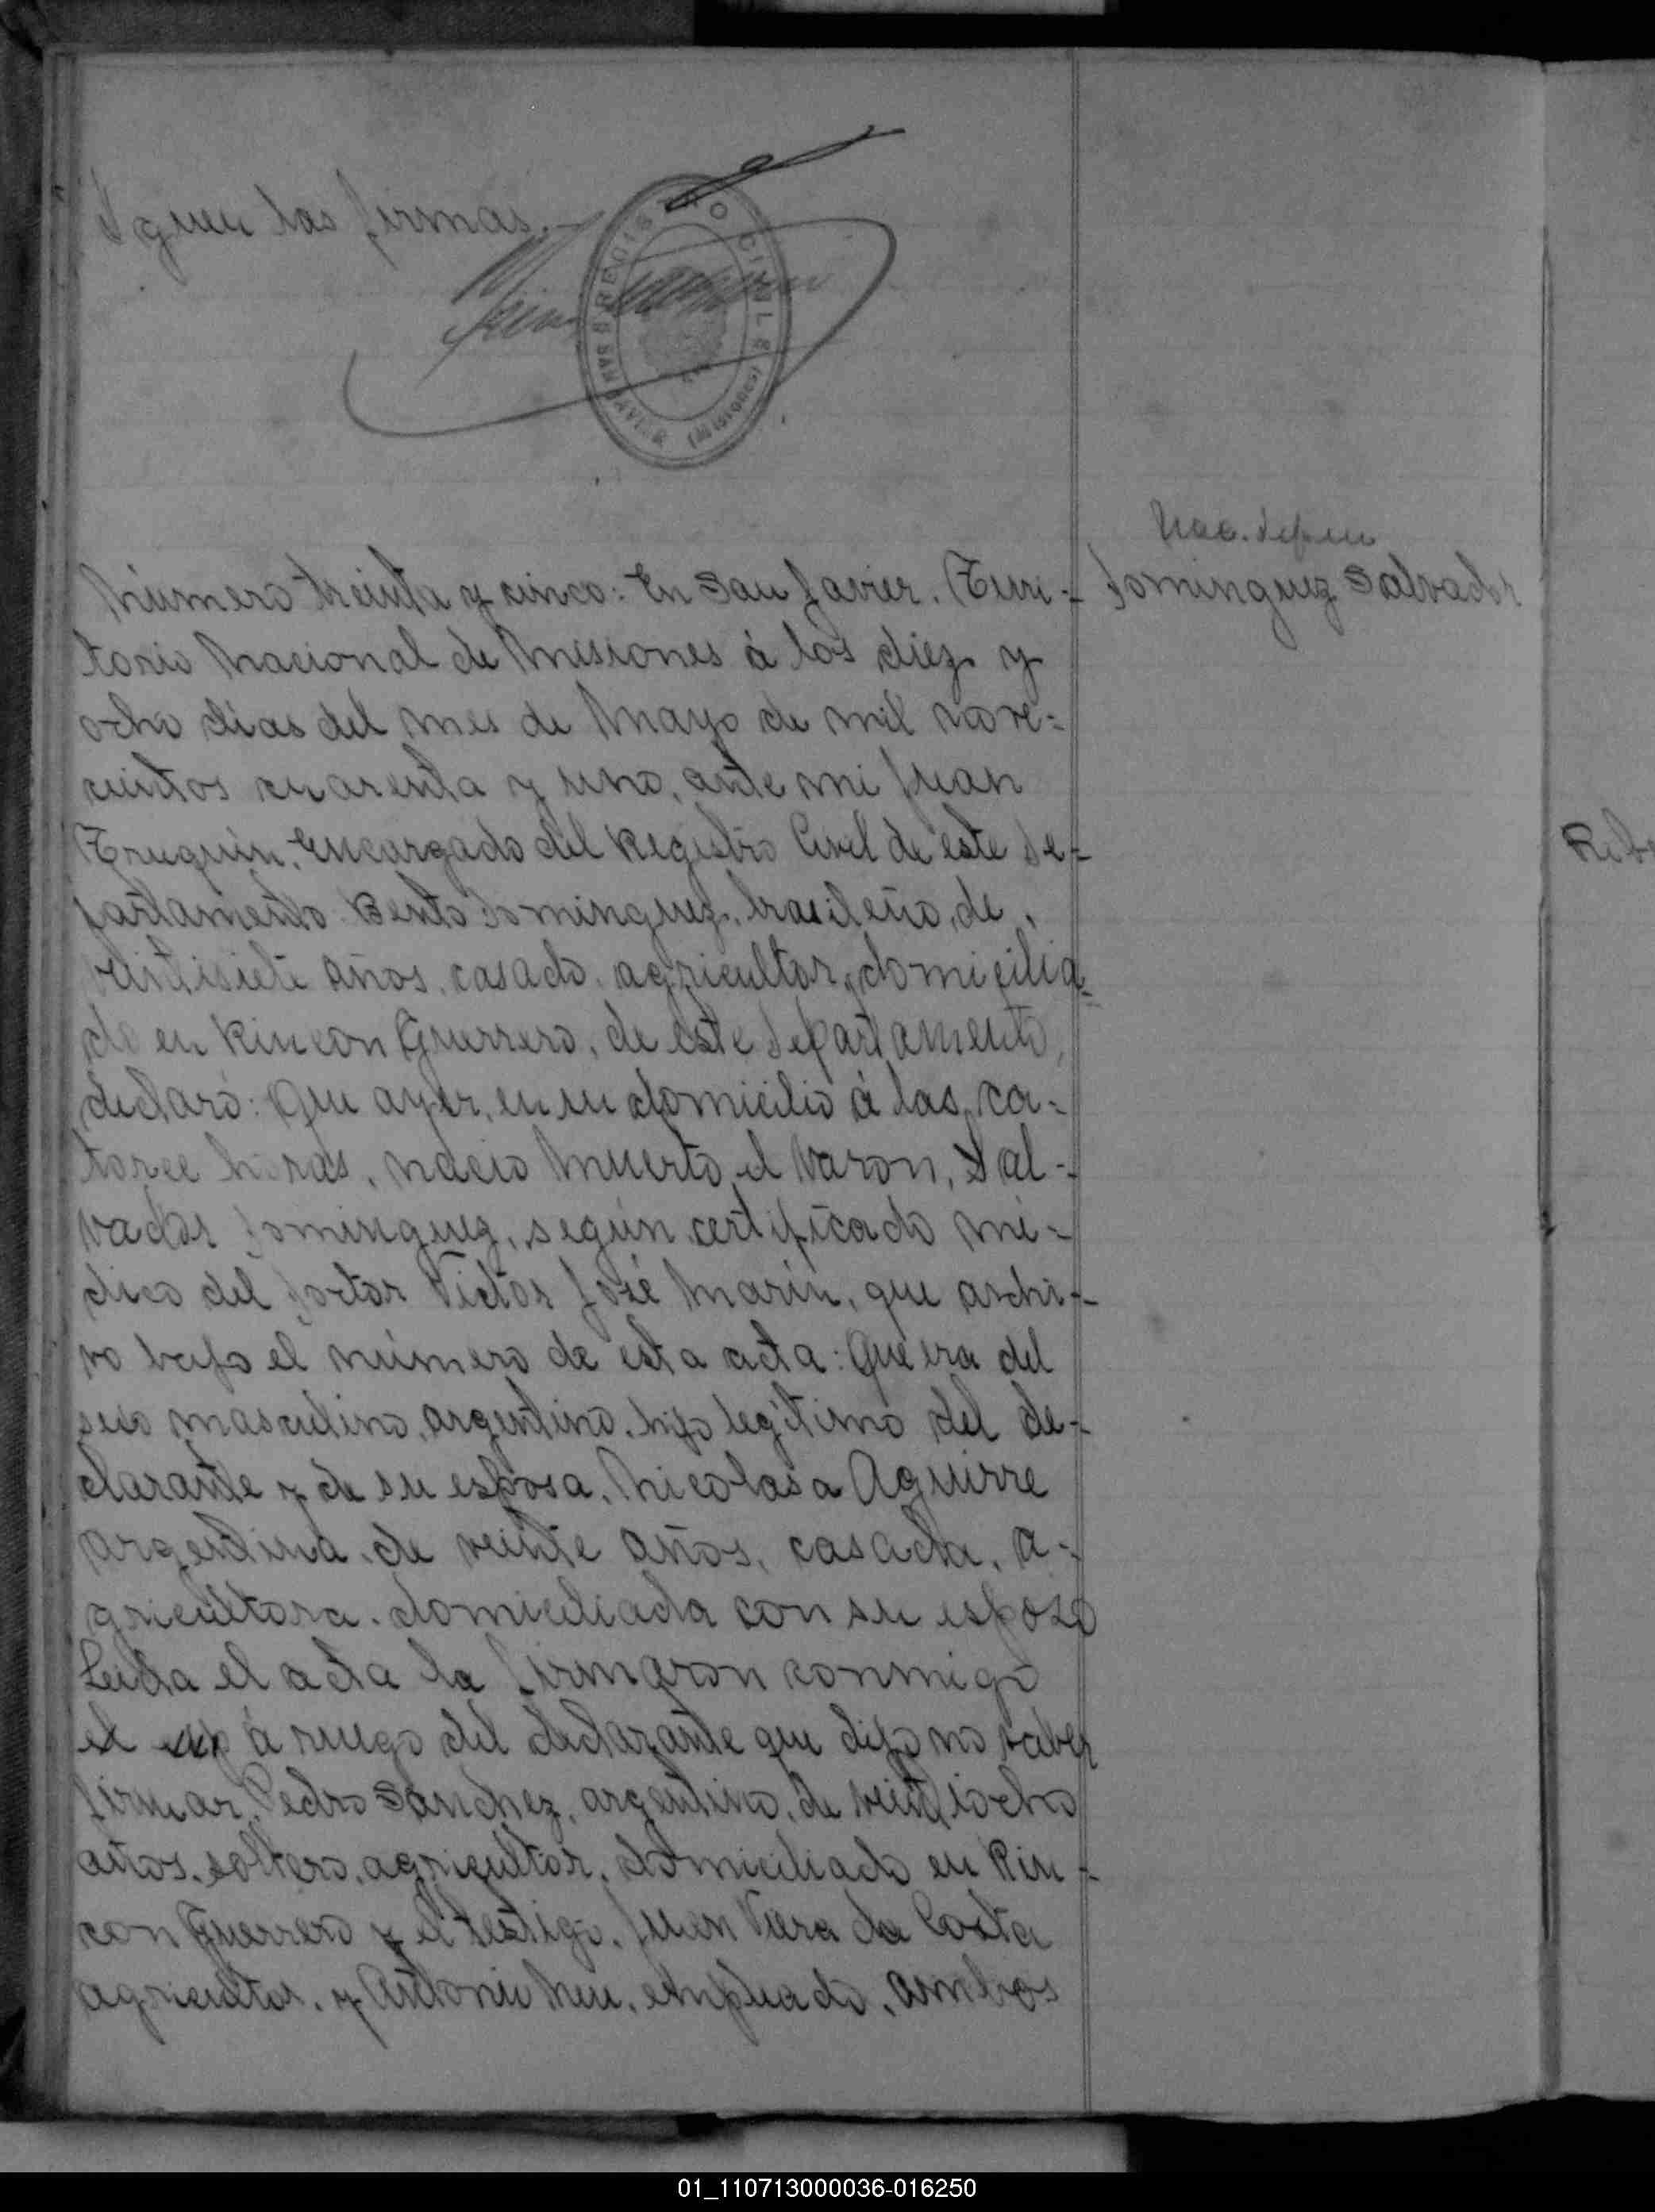 Siguen las firmas.-
REGISTRO CIVIL
SAN JAVIER (Misiones)
Nac. defun
Dominguez Salvador
Número treinta y cinco: En San Javier. (Terri-
torio Nacional de Misiones à los diez y
ocho dias del mes de Mayo de mil nove-
cientos cuarenta y uno, ante mi Juan
Truquin, Encargado del Registro Civil de este De-
partamento Bento Dominguez, brasileño, de
veintisiete años, casado, agricultor, domicilia-
do en Rincon Guerrero, de este Departamento,
declaró: Que ayer, en su domicilio à las ca-
torce horas, nacio muerto el varon, Sal-
vador Dominguez, según certificado mé-
dico del Doctor Victor José Marin, que archi-
vo bajo el número de esta acta: Que era del
sexo masculino, argentino, hijo legítimo del de-
clarante y de su esposa, Nicolasa Aguirre
argentina, de veinte años, casada, a-
gricultora, domiciliada con su esposo
Leida el acta la firmaron conmigo
el à ruego del declarante que dijo no saber
firmar, Pedro Sanchez, argentino, de veintiocho
años, soltero, agricultor, domiciliado en Rin-
con Guerrero y el testigo, Juan Viera da Costa
agricultor, y Antonio, empleado, ambos
Rib
01_110713000036-016250